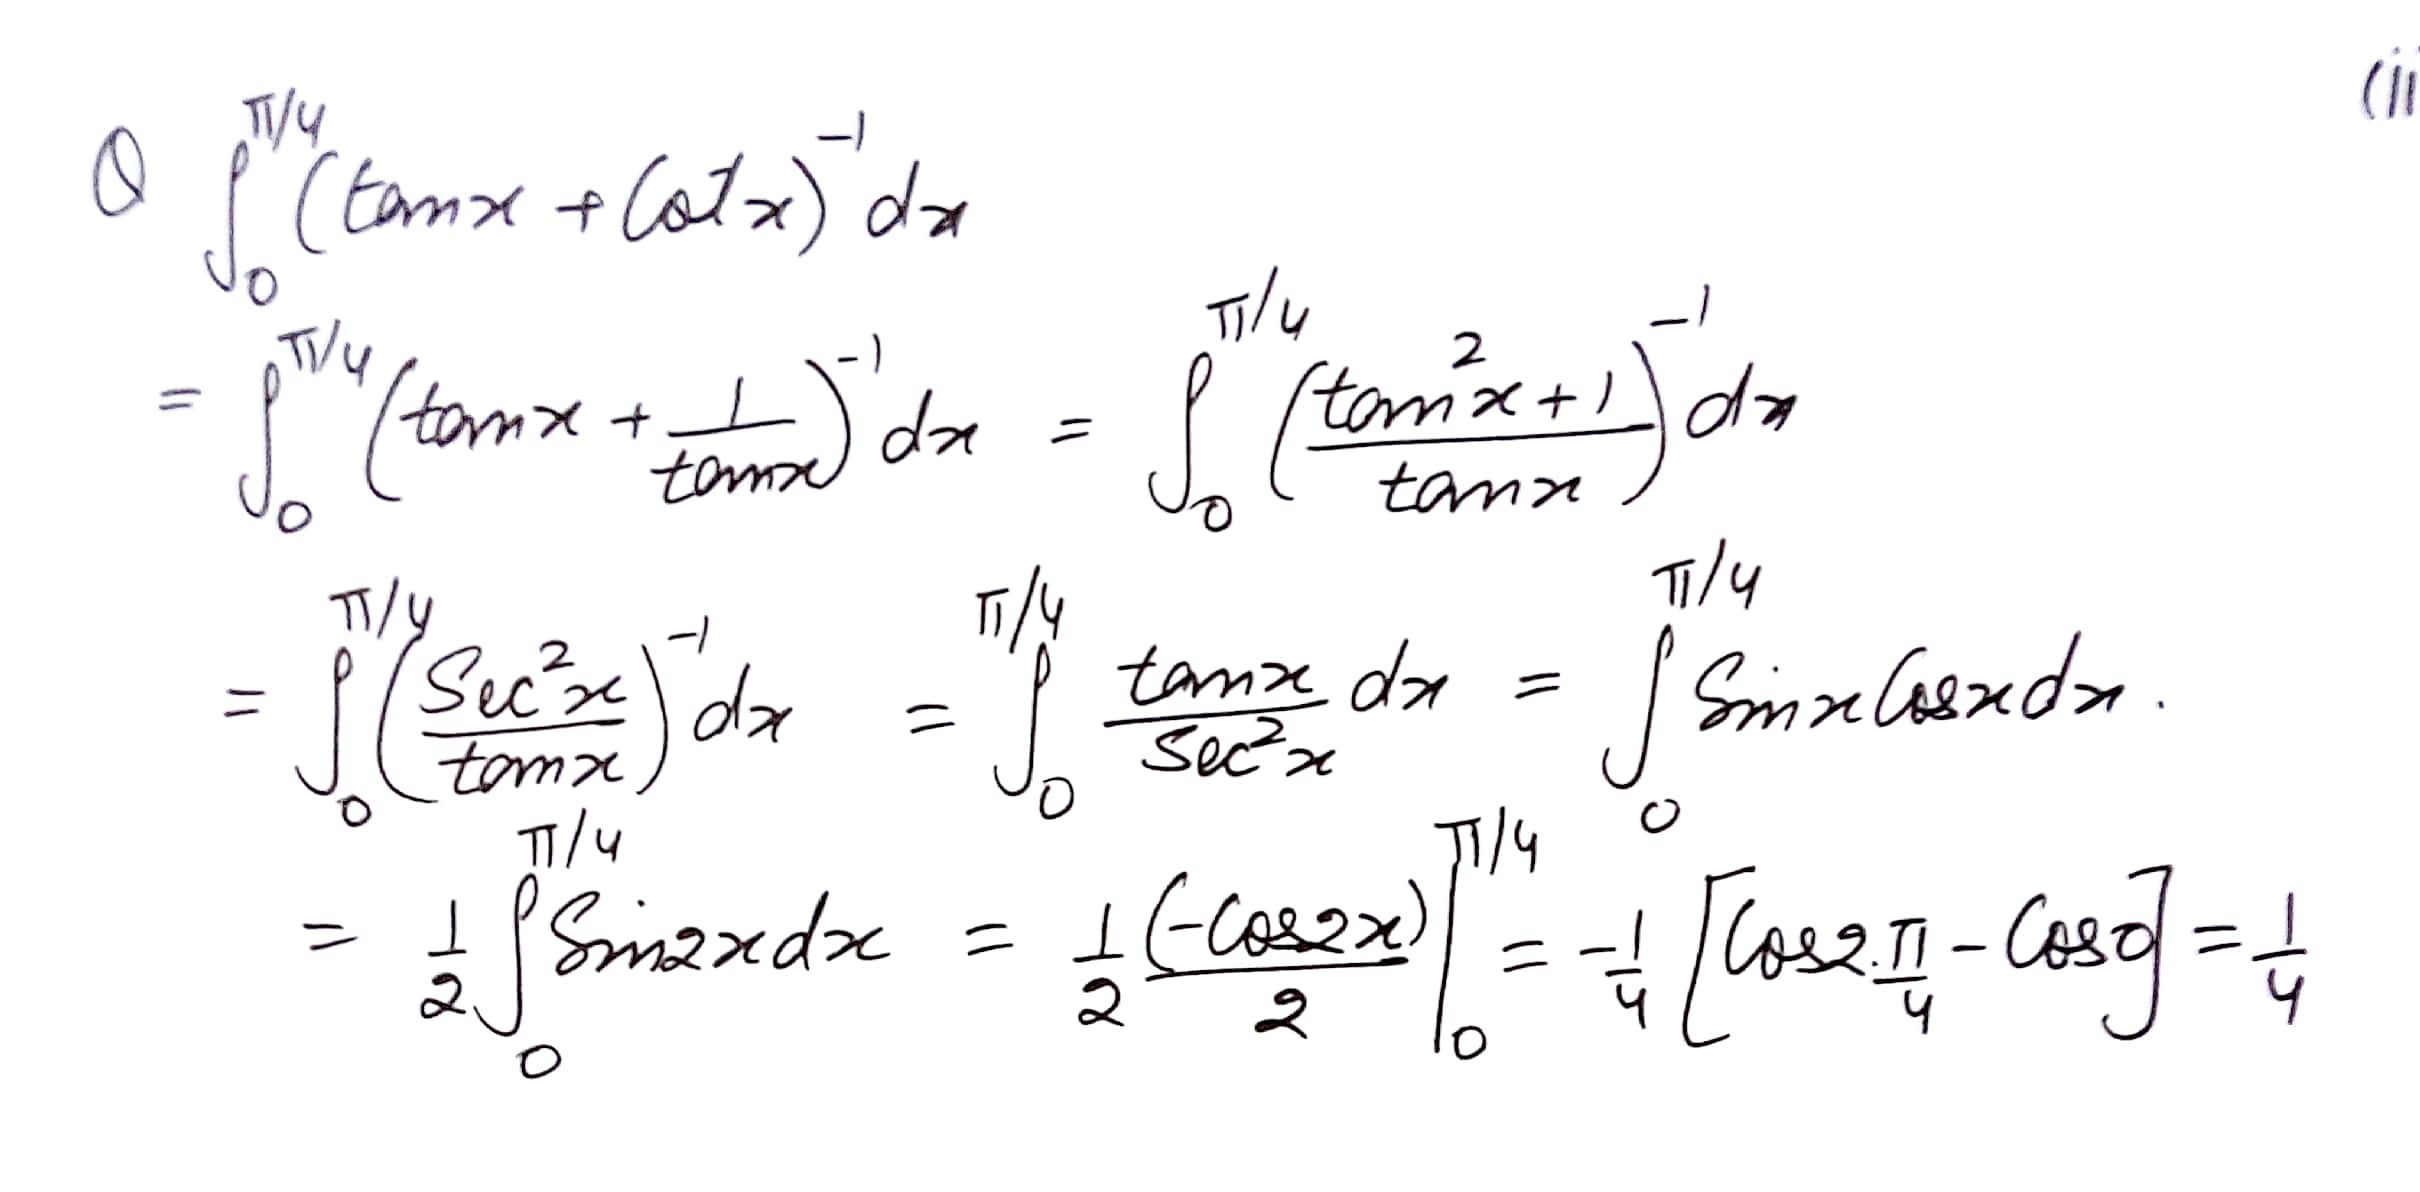 (ii
Q ∫₀^{π/4} (tanx + Cotx)^{-1} dx
= ∫₀^{π/4} (tanx + 1/tanx)^{-1} dx = ∫₀^{π/4} ((tan²x+1)/tanx)^{-1} dx
= ∫₀^{π/4} (Sec²x/tanx)^{-1} dx = ∫₀^{π/4} tanx/Sec²x dx = ∫₀^{π/4} Sinx Cosx dx.
= 1/2 ∫₀^{π/4} Sin2x dx = 1/2 (-Cos2x)/2 |₀^{π/4} = -1/4 [Cos2.π/4 - Cos0] = 1/4